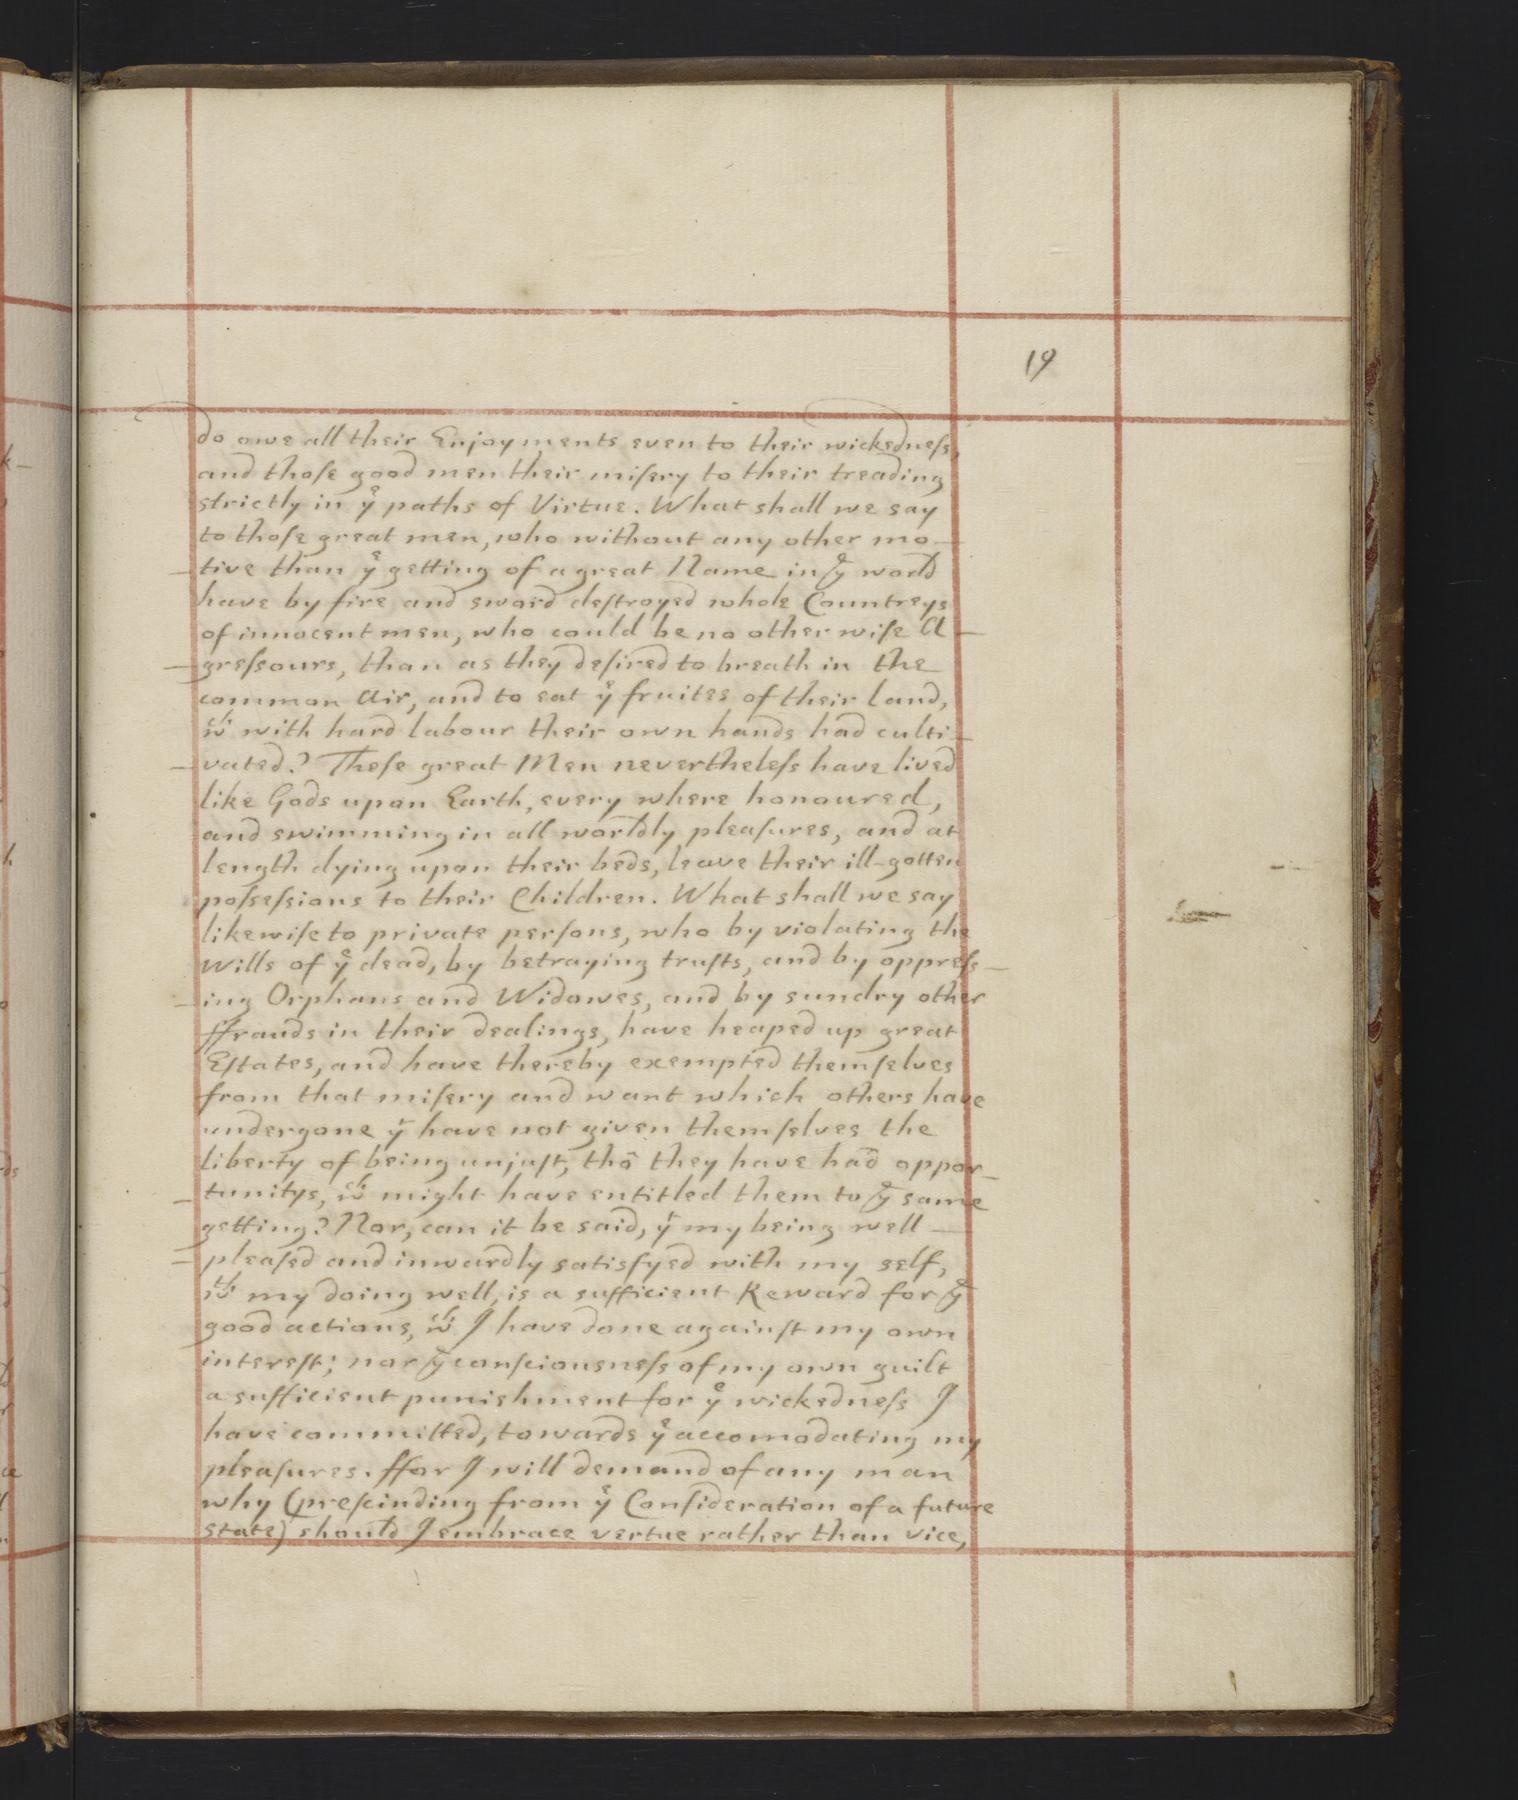 19
do owe all their Enjoyments even to their wickedneſs,
and thoſe good men their miſery to their treading
strictly in yͤ paths of Virtue. What shall we say
to thoſe great men, who without any other mo-
-tive than yͤ getting of a great Name in yͤ world
have by fire and sword deſtroyed whole Countreys
of innocent men, who could be no other wiſe A-
-greſsours, than as they deſired to breath in the
common Air, and to eat yͤ fruites of their land,
wͨʰ with hard labour their own hands had culti-
-vated? Theſe great Men nevertheleſs have lived
like Gods upon Earth, every where honoured,
and swimming in all worldly pleaſures, and at
length dying upon their beds, leave their ill-gotten
poſseſsions to their Children. What shall we say
likewiſe to private perſons, who by violating the
Wills of yͤ dead, by betraying truſts, and by oppreſs-
-ing Orphans and Widowes, and by sundry other
ffrauds in their dealings, have heaped up great
Eſtates, and have thereby exempted themſelves
from that miſery and want which others have
undergone yͭ have not given themſelves the
liberty of being unjuſt, thô they have had oppor-
-tunitys, wͨʰ might have entitled them to yͤ same
getting? Nor, can it be said, yͭ my being well-
-pleaſed and inwardly satisfyed with my self,
wͭʰ my doing well, is a sufficient Reward for yͤ
good actions, wͨʰ I have done againſt my own
intereſt; nor yͤ conſciousneſs of my own guilt
a sufficient punishment for yͤ wickedneſs I
have committed, towards yͤ accomodating my
pleaſures. ffor I will demand of any man
why (preſcinding from yͤ Conſideration of a future
state) should I embrace vertue rather than vice,